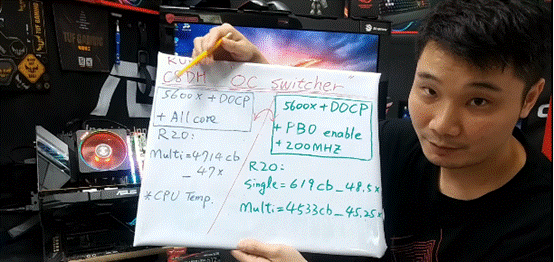 C8DH "OC switcher"
5600X + DOCP
+ All core
R20:
Multi = 4714cb
- 47x
*CPU Temp.
5600X + DOCP
+ PBO enable
+ 200MHZ
R20:
Single = 619cb_48.5x
Multi = 4533cb_45.25x